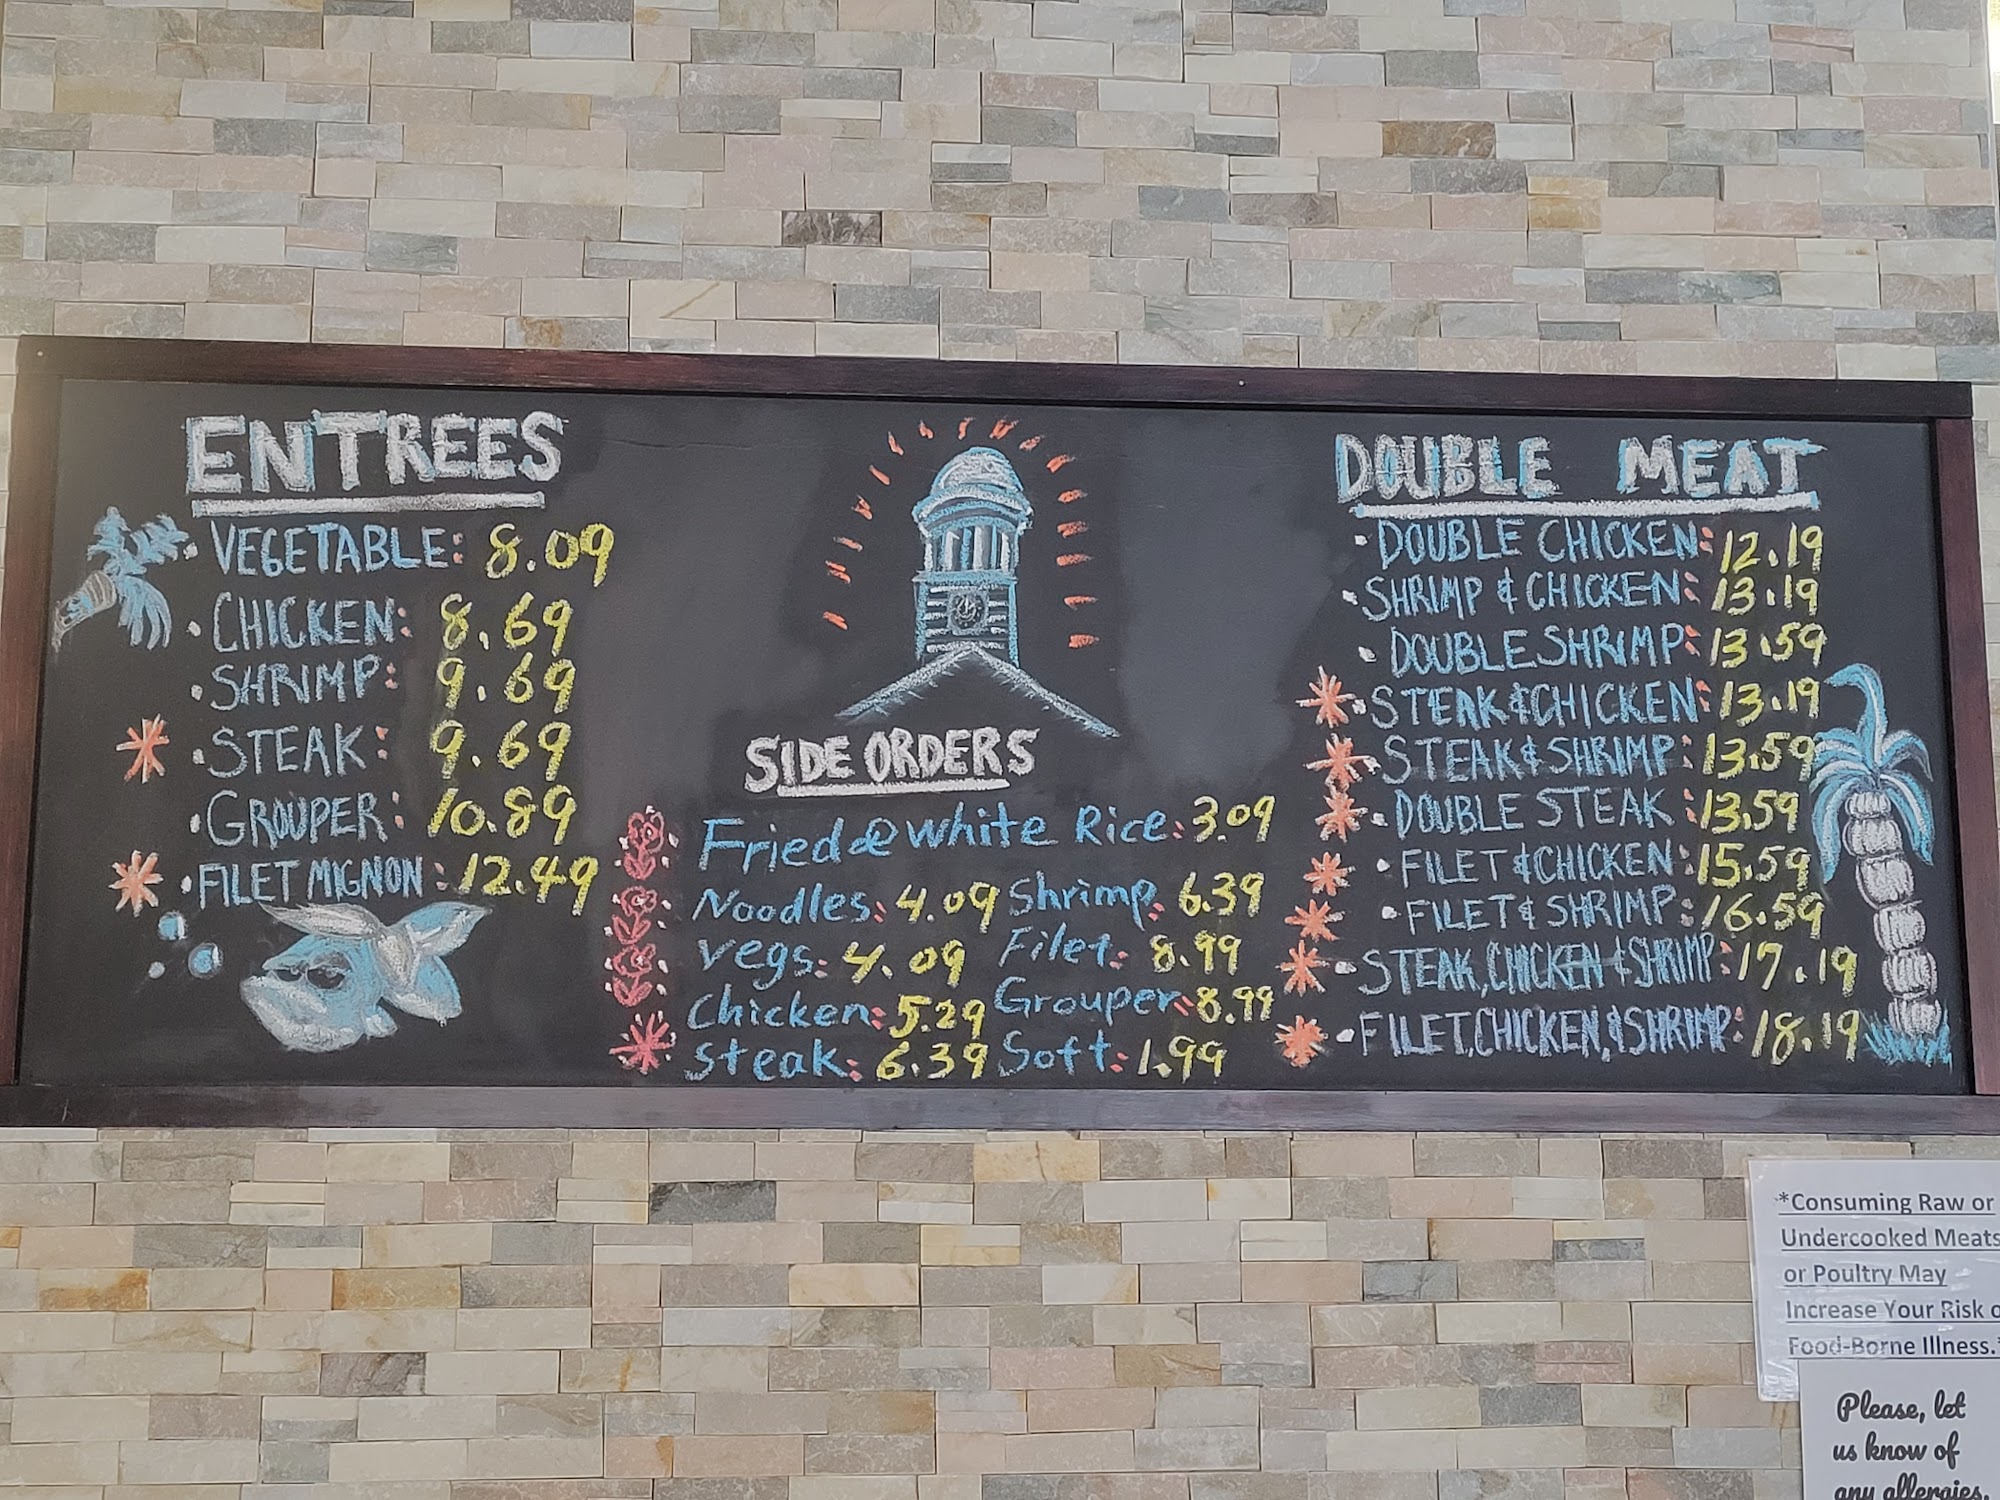 ENTREES
• VEGETABLE: 8.09
• CHICKEN: 8.69
• SHRIMP: 9.69
* • STEAK: 9.69
• GROUPER: 10.89
* • FILET MIGNON: 12.49
SIDE ORDERS
Fried & White Rice: 3.09
Noodles: 4.09 Shrimp: 6.39
Vegs: 4.09 Filet: 8.99
Chicken: 5.29 Grouper: 8.99
* Steak: 6.39 Soft: 1.99
DOUBLE MEAT
• DOUBLE CHICKEN: 12.19
• SHRIMP & CHICKEN: 13.19
• DOUBLE SHRIMP: 13.59
* • STEAK & CHICKEN: 13.19
* • STEAK & SHRIMP: 13.59
* • DOUBLE STEAK: 13.59
* • FILET & CHICKEN: 15.59
* • FILET & SHRIMP: 16.59
* • STEAK, CHICKEN & SHRIMP: 17.19
* • FILET, CHICKEN, & SHRIMP: 18.19
*Consuming Raw or
Undercooked Meats
or Poultry May
Increase Your Risk
Food-Borne Illness.*
Please, let
us know of
any allergies.